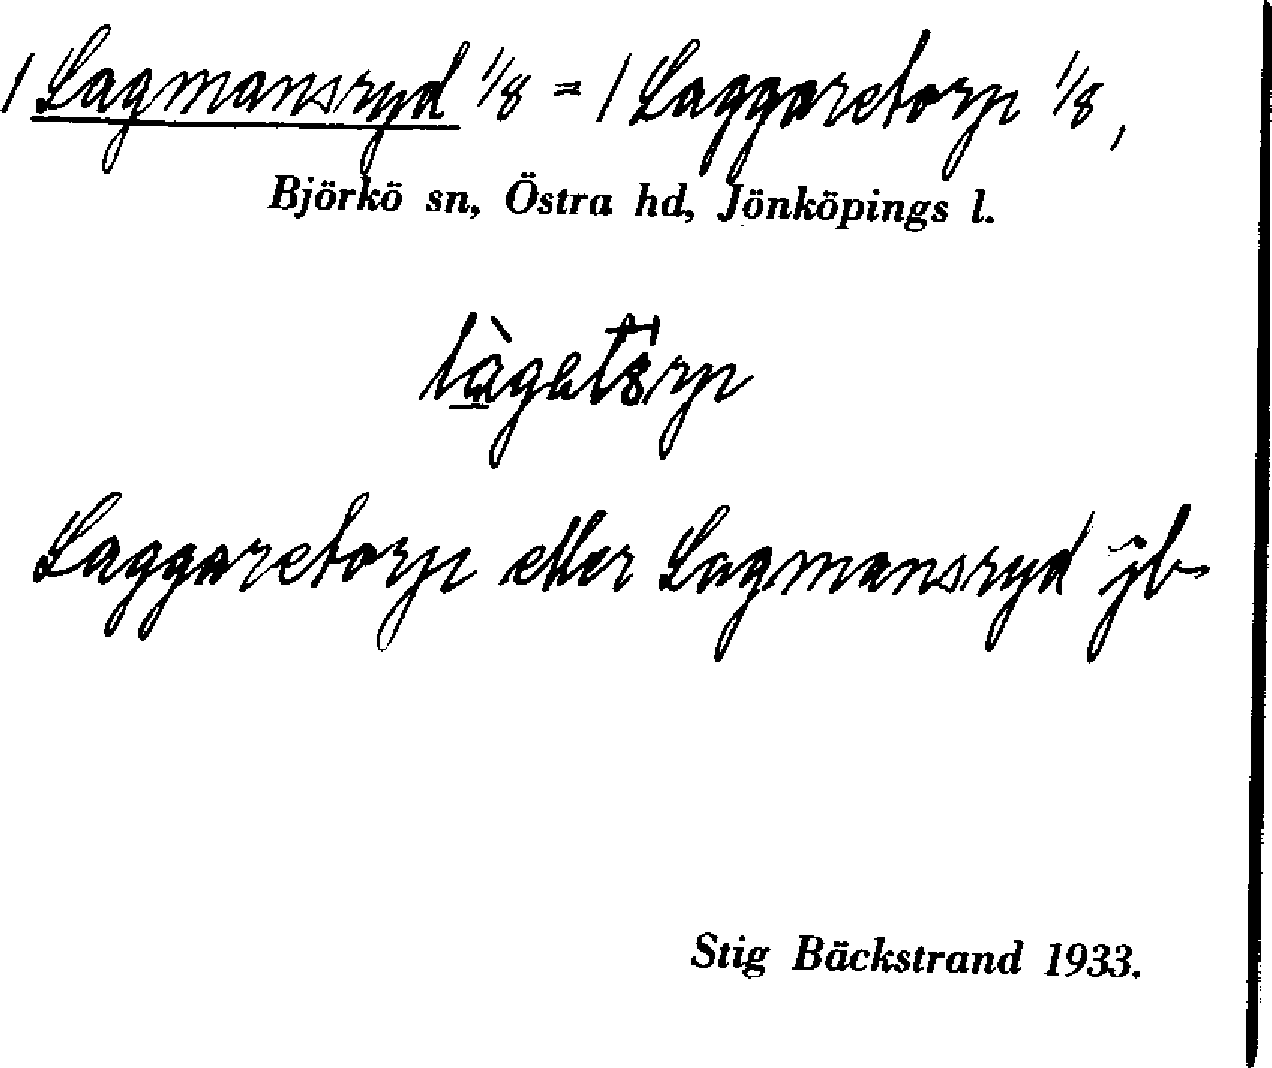 1 Lagmansryd 1/8 = 1 Laggaretorp 1/8,
Björkö sn, Östra hd, Jönköpings l.
Laggaretorp eller Lagmansryd jb
Stig Bäckstrand 1933.